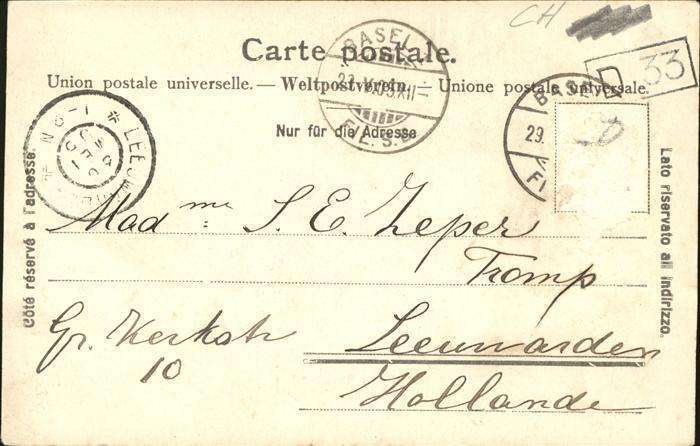 CH
33
Carte postale.
Union postale universelle. — Weltpostverein. — Unione postale universale.
Nur für die Adresse
BASEL
29.V.05.XII
BAS
29.
FI
LEEUW
N 8-1
Côté réservé à l'adresse.
Lato riservato all indirizzo.
Madme S. E. Zeper
Tromp
Gr. Kerkstr Leeuwarden
10
Hollande